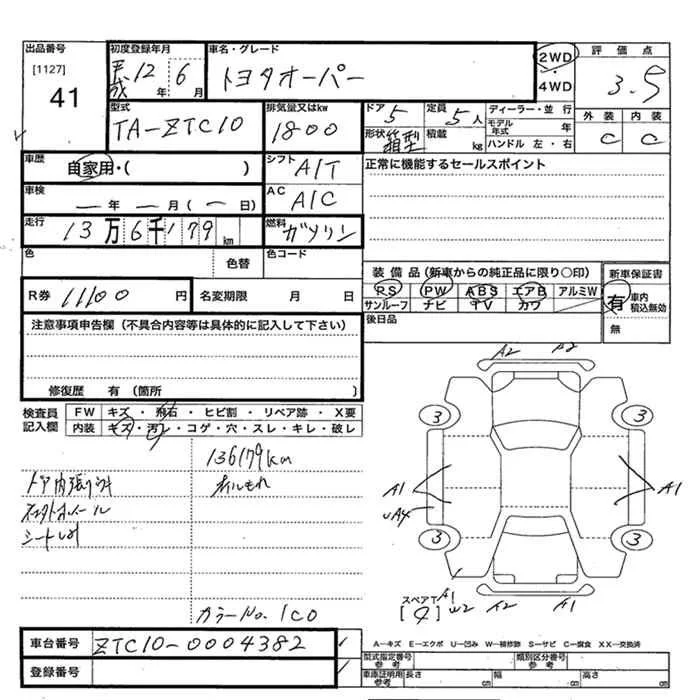 出品番号 初度登録年月 車名・グレード 2WD 評価点
[1127] 平成12年6月 トヨタオーパー ・4WD 3.5
41
型式 排気量又はkw ドア 5 定員 5人 ディーラー・並行 外装 内装
TA-ZTC10 1800 形状 箱型 積載 kg モデル年式 年 C C
ハンドル 左・右
車歴 自家用・( ) シフト A/T 正常に機能するセールスポイント
車検 ー年 ー月(ー日) AC A/C
走行 13万6千179km 燃料 ガソリン
色 色替 色コード
装備品(新車からの純正品に限り○印) 新車保証書
R券 11100円 名変期限 月 日 PS PW ABS エアB アルミW 有 車内積込無効
サンルーフ ナビ TV カワ 無
注意事項申告欄(不具合内容等は具体的に記入して下さい) 後日品
修復歴 有(箇所 )
検査員記入欄 FW キズ・飛石・ヒビ割・リペア跡・X要
内装 キズ・汚レ・コゲ・穴・スレ・キレ・破レ
A2 A2
3 3
136179km
ドア内張りキズ オイルもれ
A1 A1
UA4
3 3
スペアT A1
[4] W2 A2 A1
カラーNo. 1C0
車台番号 ZTC10-0004382
A…キズ E…エクボ U…凹み W…補修跡 S…サビ C…腐食 XX…交換済
登録番号 型式指定番号 参考 類別区分番号 参考
車庫証明用 参考 長さ 幅 高さ